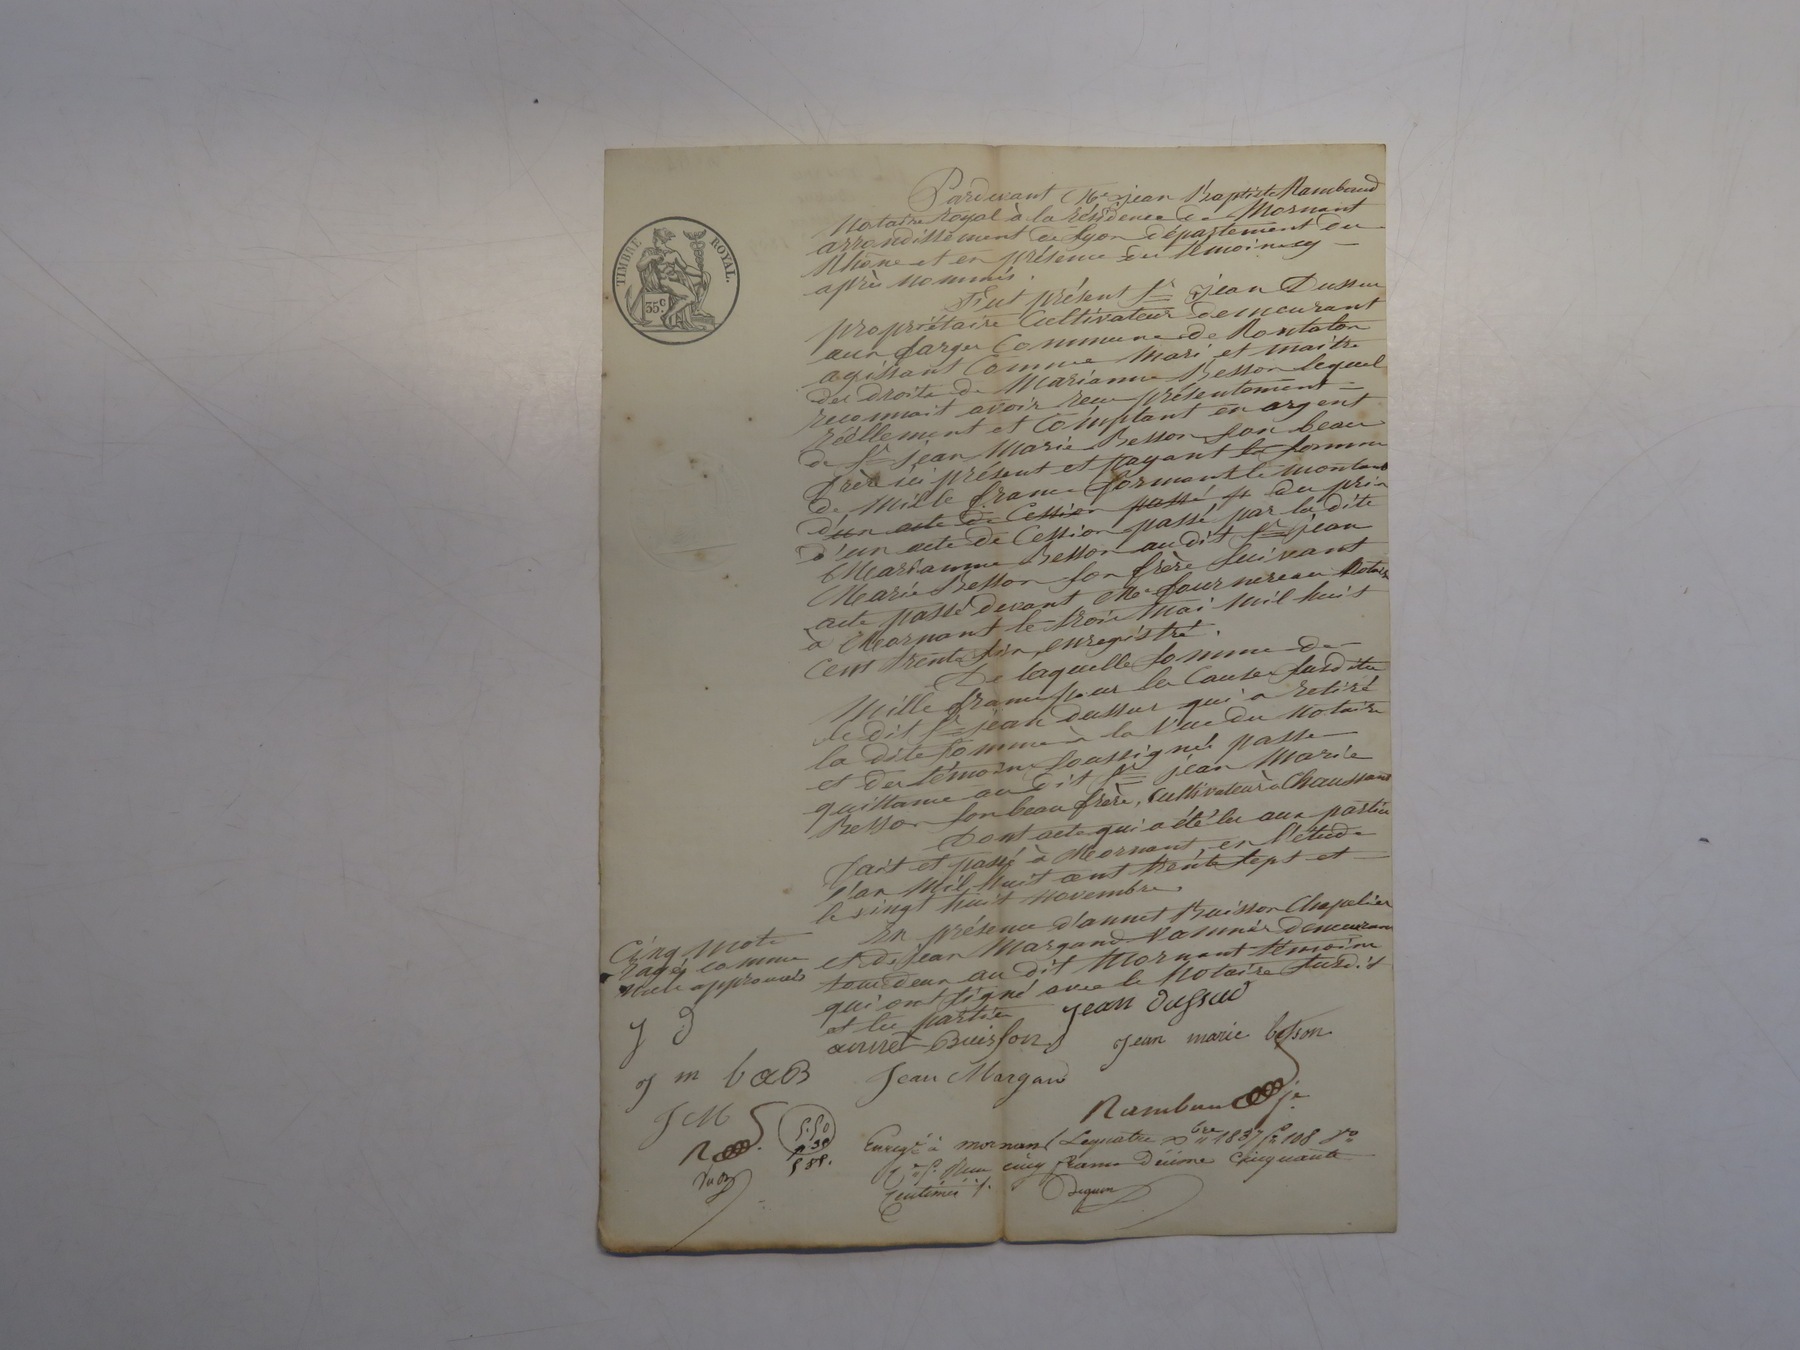 TIMBRE ROYAL.
35 c
Pardevant Me jean Baptiste Rambaud
Notaire royal à la résidence de Mornant
arrondissement de Lyon département du
Rhône et en présence des témoins cy
après nommés.
Fut présent Sr jean Dussur
propriétaire Cultivateur demeurant
aux farges Commune de Rontalon
agissant Comme Mari et maitre
des droits de Marianne Besson lequel
reconnait avoir reçu présentement
réellement et Comptant en argent
de Sr jean Marie Besson son beau
frère ici présent et payant la somme
de Mille francs formant le montant
d'un acte de Cession passé du prix
d'un acte de Cession passé par la dite
Marianne Besson audit Sr jean
Marie Besson son frère suivant
acte passé devant Me fournereau Notaire
à Mornant le trois mai mil huit
Cent trente six, enregistré.
De laquelle somme de
Mille francs pour les Causes susdites
le dit Sr jean dussur qui a retiré
la dite somme à la Vue du Notaire
et des témoins soussignés passe
quittance au dit Sr jean Marie
Besson son beau frère, Cultivateur à Chaussant
Dont acte qui a été lu aux parties
fait et passé à Mornant, en l'étude
l'an Mil huit cent trente sept et
le vingt huit novembre
En présence d'annet Buisson Chapelier
et de jean Margand Vannier demeurant
tous deux au dit Mornant témoins
qui ont signé avec le Notaire susdit
et les parties
Cinq mots
rayés comme
nuls approuvés
jean dussud
annet Buisson
jean marie besson
J D
j m b a B
Jean Margand
J M
Rambaud
R
5.50
5 85.
Enregé à mornant Le quatre Xbre 1837 fo 108 Vo
Reçu cinq francs Décime Cinquante
Centimes